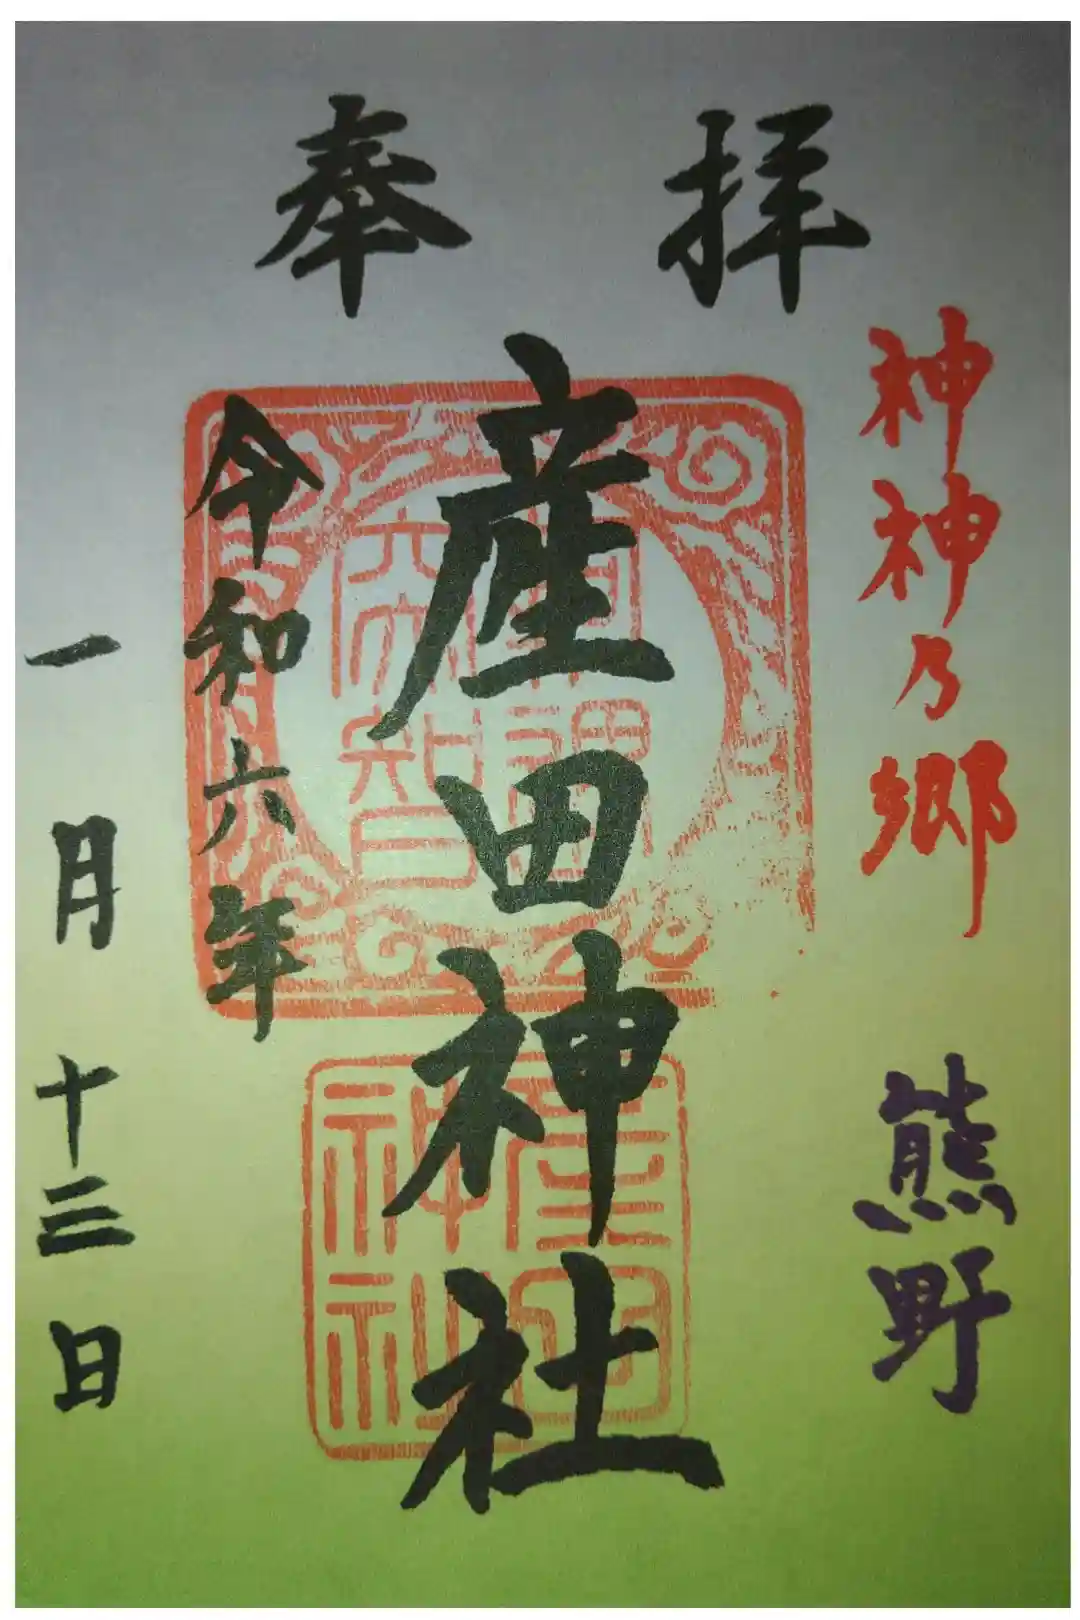 奉拝
神神乃郷 熊野
産田神社
令和六年
一月十三日
産田神社